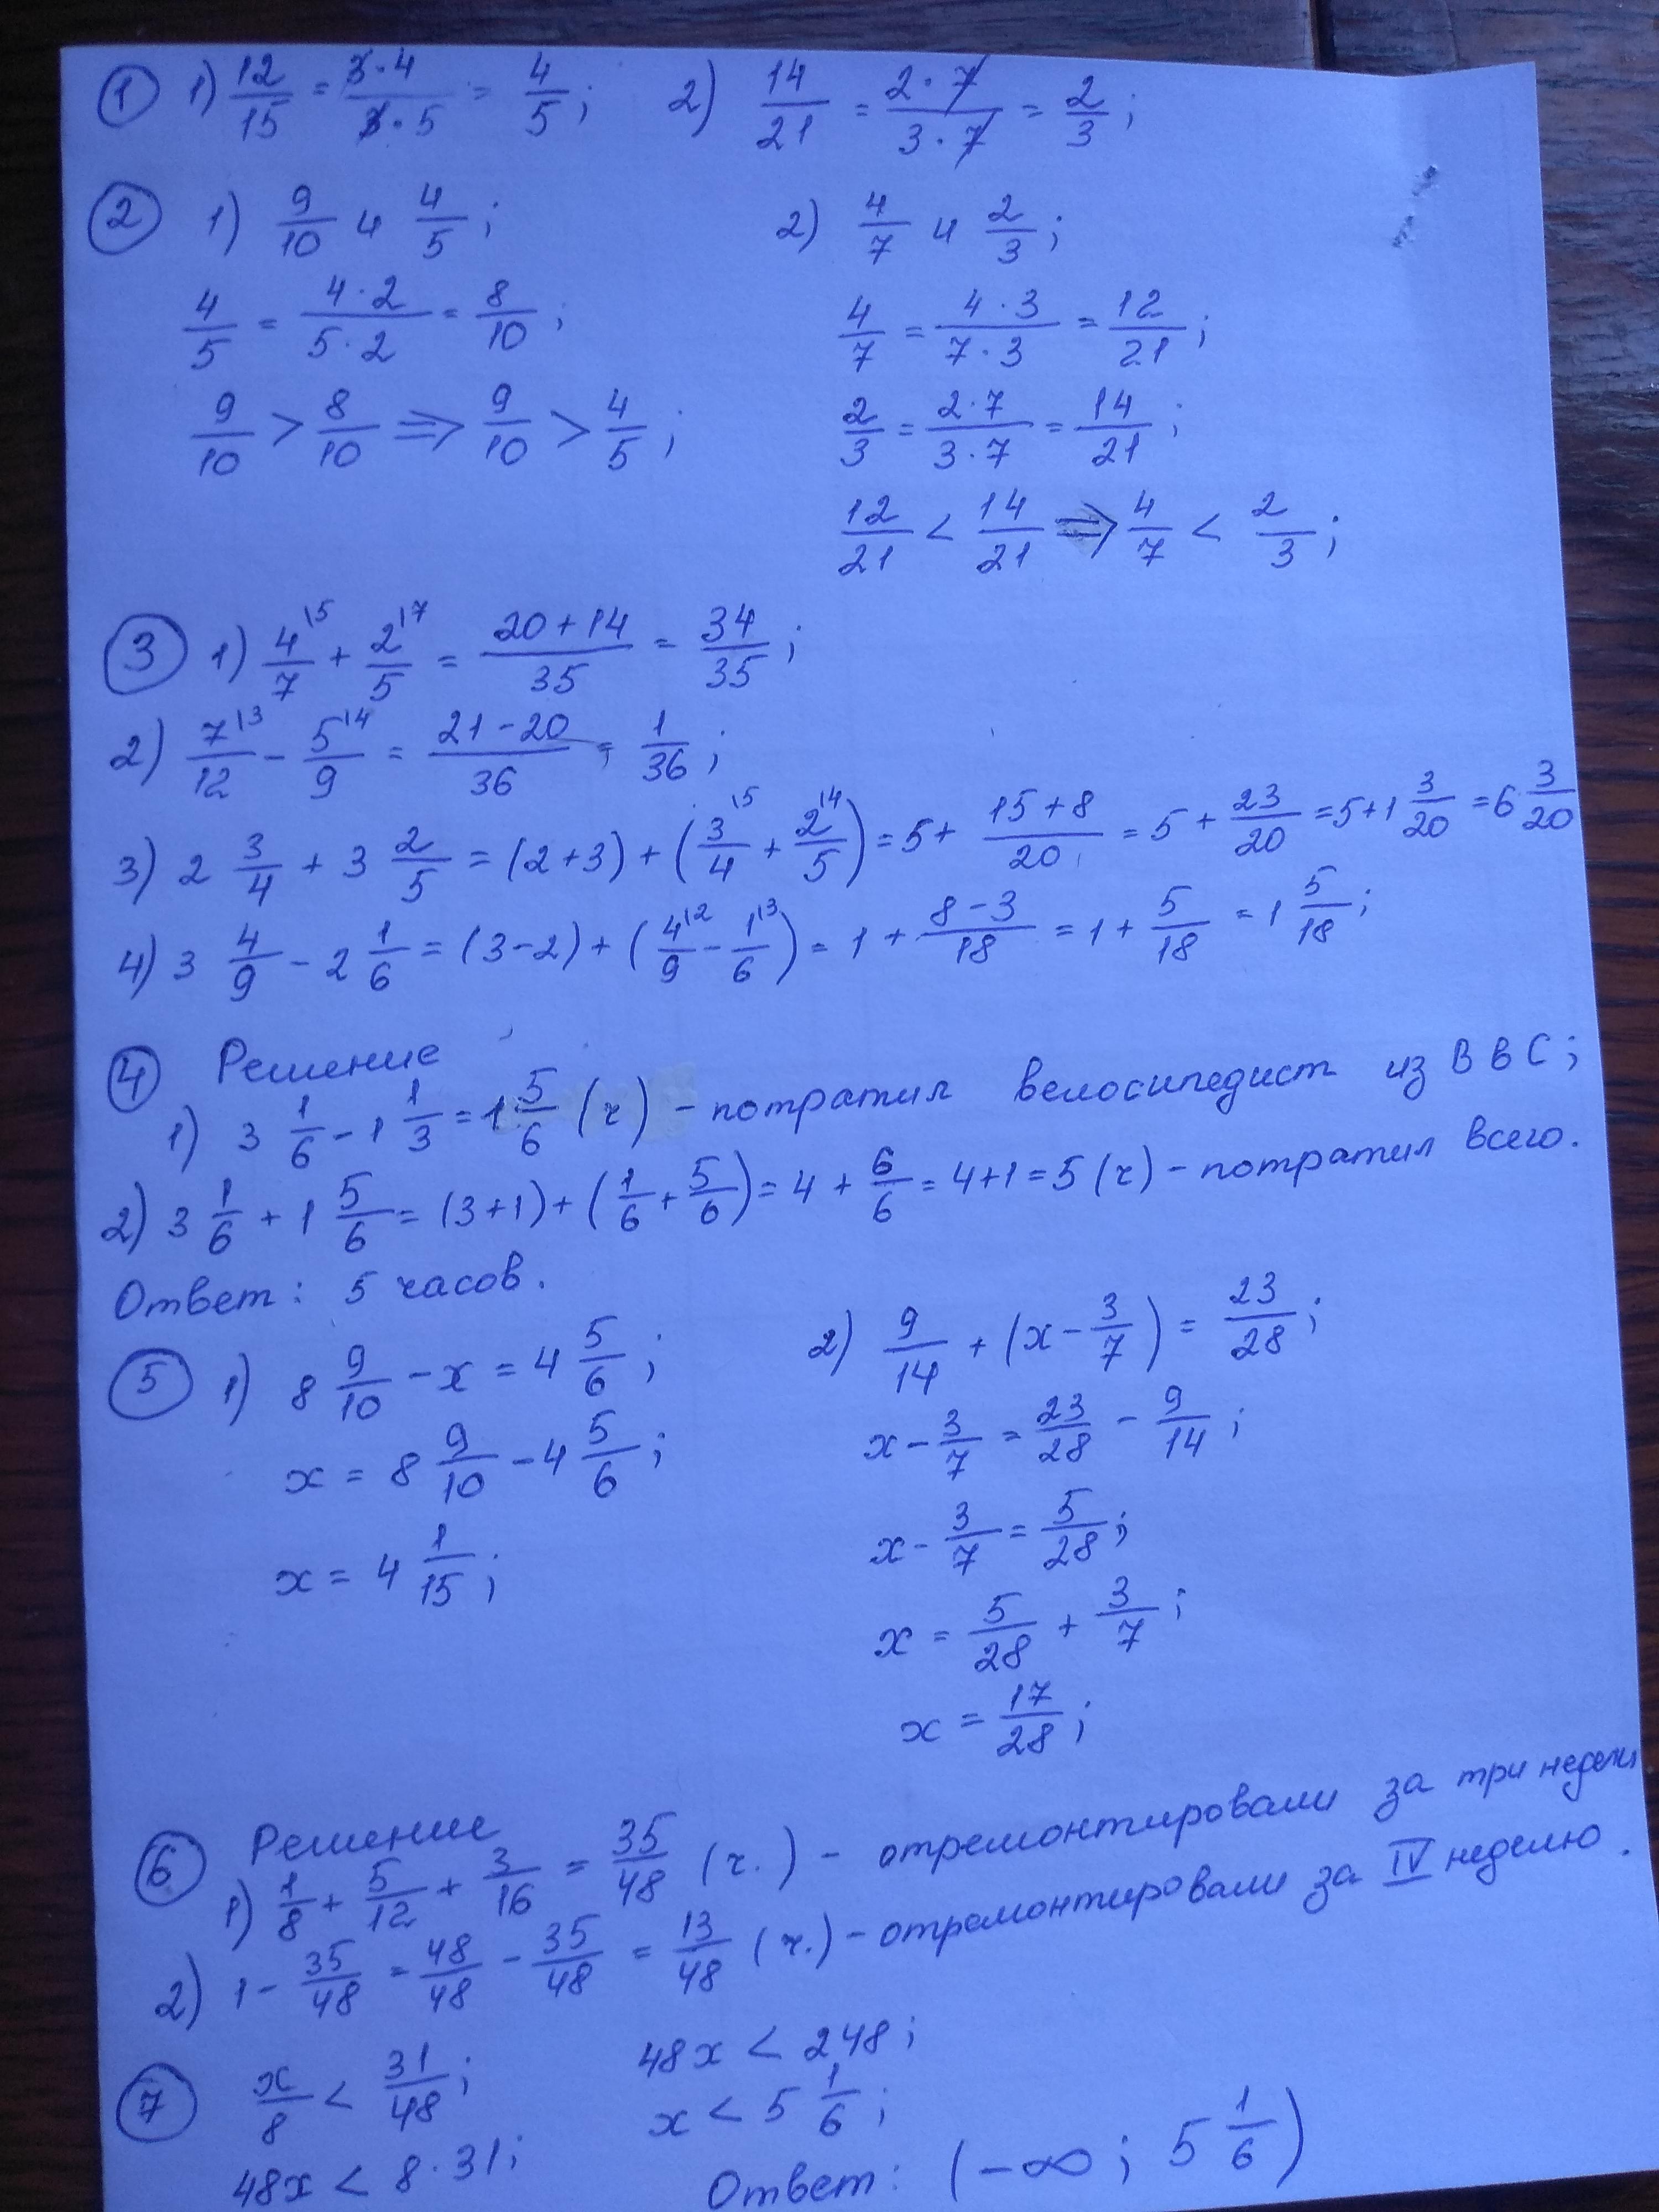 ① 1) 12/15 = 3·4/3·5 = 4/5; 2) 14/21 = 2·7/3·7 = 2/3;
② 1) 9/10 и 4/5; 2) 4/7 и 2/3;
4/5 = 4·2/5·2 = 8/10; 4/7 = 4·3/7·3 = 12/21;
9/10 > 8/10 => 9/10 > 4/5; 2/3 = 2·7/3·7 = 14/21;
12/21 < 14/21 => 4/7 < 2/3;
③ 1) 4\5/7 + 2\7/5 = 20+14/35 = 34/35;
2) 7\3/12 - 5\4/9 = 21-20/36 = 1/36;
3) 2 3/4 + 3 2/5 = (2+3) + (3\5/4 + 2\4/5) = 5 + 15+8/20 = 5 + 23/20 = 5+1 3/20 = 6 3/20
4) 3 4/9 - 2 1/6 = (3-2) + (4\2/9 - 1\3/6) = 1 + 8-3/18 = 1 + 5/18 = 1 5/18;
④ Решение
1) 3 1/6 - 1 1/3 = 1 5/6 (ч) - потратил велосипедист из В в С;
2) 3 1/6 + 1 5/6 = (3+1) + (1/6 + 5/6) = 4 + 6/6 = 4+1 = 5 (ч) - потратил всего.
Ответ: 5 часов.
⑤ 1) 8 9/10 - x = 4 5/6; 2) 9/14 + (x - 3/7) = 23/28;
x = 8 9/10 - 4 5/6; x - 3/7 = 23/28 - 9/14;
x = 4 1/15; x - 3/7 = 5/28;
x = 5/28 + 3/7;
x = 17/28;
⑥ Решение
1) 1/8 + 5/12 + 3/16 = 35/48 (ч.) - отремонтировали за три недели
2) 1 - 35/48 = 48/48 - 35/48 = 13/48 (ч.) - отремонтировали за IV неделю.
⑦ x/8 < 31/48; 48x < 248;
48x < 8·31; x < 5 1/6;
Ответ: (-∞; 5 1/6)